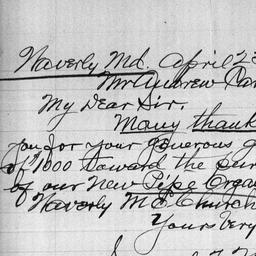 Waverly Md. April 23
Mr Andrew Car
My Dear Sir.
Many thank
you for your generous g
of 1000 toward the pur
of our New Pipe Organ
Waverly M.E. Church
Yours Very